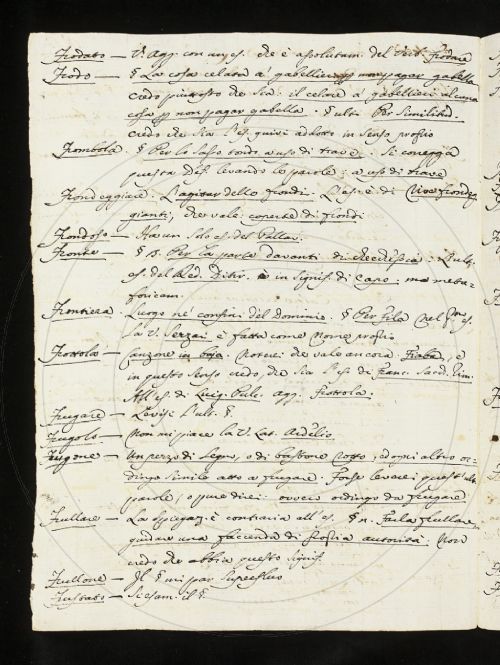 Frodato — V. Agg. con un es. che è assolutam. del Verb. Frodare
Frodo — § La cosa celata a' gabellieri p non pagar gabella
credo piuttosto che sia il celare a gabellieri alcuna
cosa p non pagar gabella. § ult. Per Similitud.
credo che sia l'es. quivi addotto in senso proprio
Frombola. § Per lo sasso tondo a uso di trave. Si corregga
questa Dif. levando le parole: a uso di trave
Frondeggiare. L'agitar dello frondi. L'es. è di Vive frondeg
gianti; che vale coperte di frondi
Frondoso — Ha un solo es. del Pallav.
Fronte — § 8. Per la parte davanti di checchessia. L'ult.
es. del Red. Ditir. è in signif. di Capo, ma meta-
foricam.
Frontiera. Luogo ne' confini del dominio. § Per Fila Nel es.
la V. è fatta come nome proprio
Frottola — Canzone in baja. Noterei che vale ancora, e
in questo senso credo che sia l'es. di Franc. Sacch. rim.
All'es. di Luig. Pulc. agg. Frottola.
Frugare — Levisi l'ult. §.
Frugolo — Non mi piace la V. Lat. Ardelio
Frugone — Un pezzo di legno, o di bastone rotto, ed ogni altro or-
dingo simile atto a frugare. Forse leverei quest' ult.
parole; oppure direi: ovvero ordingo da frugare
Frullare — La spiegaz. è contraria all'es. § n. Farla frullare,
guidare una faccenda di propria autorità. Non
credo che abbia questo signif.
Frullone — Il § mi par superfluo
Frustato — Si esam. il §.